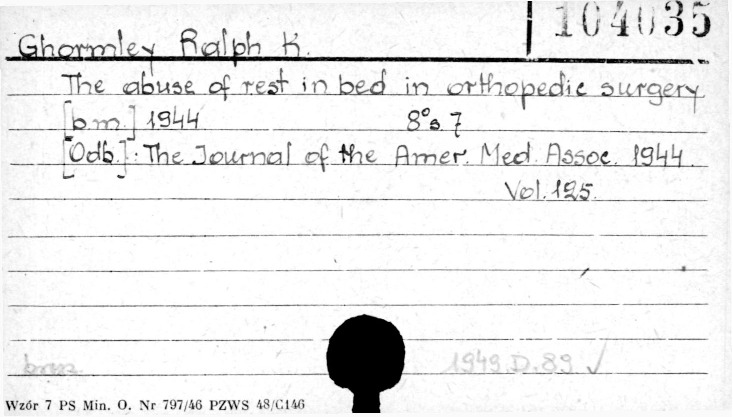 104035
Ghormley Ralph K.
The abuse of rest in bed in orthopedic surgery
[b.m.] 1944 8° s. 7
[Odb.]: The Journal of the Amer. Med. Assoc. 1944.
Vol. 125.
brosz 1949.D.89 √
Wzór 7 PS Min. O. Nr 797/46 PZWS 48/C146